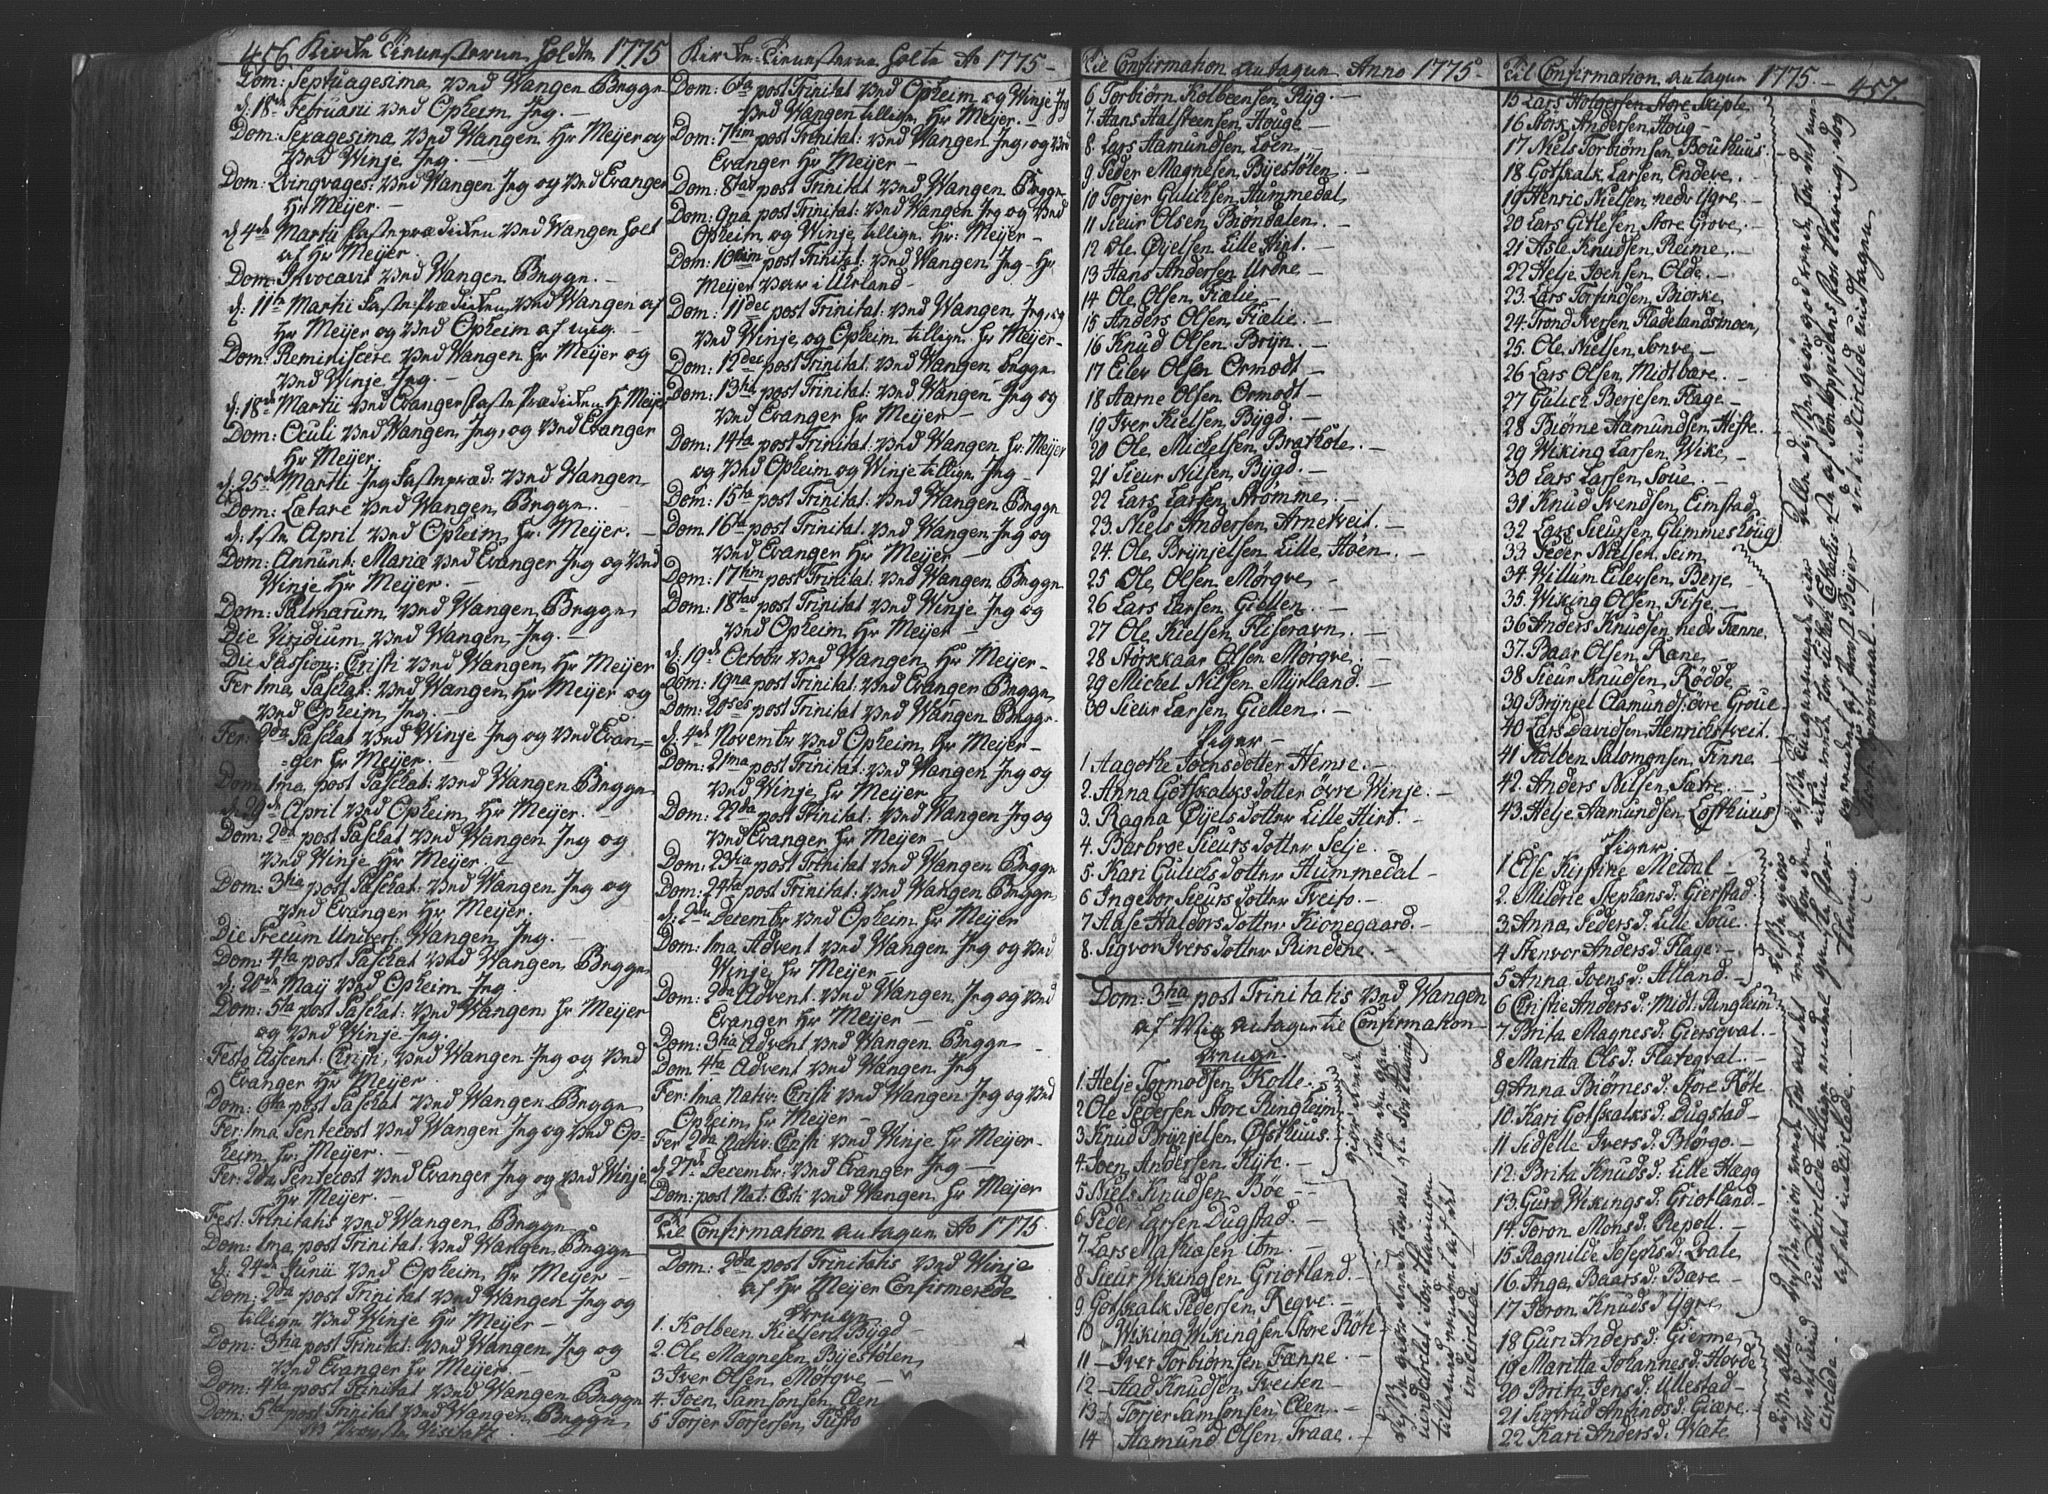 456. Kirke Tienesterne holdte 1775
Dom: Septuagesima Ved Wangen Begge
d: 18de Februarii Ved Opheim Jeg. –
Dom: Sexagesima Ved Wangen Hr Meijer og
Ved Winje Jeg. –
Dom: Qvinqvages: Ved Wangen Jeg og Ved Evanger
Hr Meijer. –
d 4de Martii fasteprædiken Ved Wangen holt
af Hr Meijer. –
Dom: Invocavit Ved Wangen Begge. –
d: 11te Martii faste Prædiken Ved Wangen af
Hr Meijer og Ved Opheim af mig. –
Dom: Reminiscere Ved Wangen Hr Meijer og
Ved Winje Jeg. –
d: 18de Martii Ved Evanger faste Prædiken Hr Meijer
Dom: Oculi Ved Wangen Jeg, og Ved Evanger
Hr Meijer.
d. 25de Martii Jeg fastepræd: Ved Wangen
Dom: Lætare Ved Wangen Begge. –
d: 1ste April Ved Opheim Hr. Meijer. –
Dom: Annunt: Mariæ Ved Evanger Jeg og Ved
Winje Hr Meijer. –
Dom: Palmarum Ved Wangen Begge
Die Viridium Ved Wangen Jeg. –
Die Passion: Christi Ved Wangen Hr Meijer
Fer 1ma Paschat: Ved Wangen Hr Meijer og
Ved Opheim Jeg. –
Fer: 2da Paschat Ved Winje Jeg og Ved Evan=
=ger Hr Meijer.
Dom: 1ma post Paschat: Ved Wangen Begge
d. 29de April Ved Opheim Hr Meijer. –
Dom: 2da post Paschat Ved Wangen Jeg og
Ved Winje Hr Meijer. –
Dom: 3tia post Paschat: Ved Wangen Jeg og
Ved Evanger Hr Meijer.
Die Precum Univers: Wangen Jeg. –
Dom: 4ta post Paschat Ved Wangen Begge
d: 20de May Ved Opheim Jeg.
Dom: 5ta post Paschat: Ved Wangen Hr Meijer
og Ved Winje Jeg. –
Festo Ascent: Christi, Ved Wangen Jeg og Ved
Evanger Hr Meijer.
Dom: 6ta post Paschat Ved Wangen Begge
Fer: 1ma Pentecost Ved Wangen Jeg og Ved Op-
heim Hr: Meijer. –
Fer: 2da Pentecost Ved Evanger Jeg og Ved Winje
Hr Meijer. –
Fest: Trinitatis Ved Wangen Begge
Dom: 1ma post Trinitat: Ved Wangen Begge
d: 24de Junii Ved Opheim Hr Meijer –
Dom: 2da post Trinitat Ved Wangen Jeg og
tillige Ved Winje Hr Meijer –
Dom: 3tia post Trinitat: Ved Wangen Jeg og
Ved Evanger Hr Meijer –
Dom: 4ta post Trinitat Ved Wangen Begge
Dom: 5ta post Trinitat Ved Wangen Begge
Visitatz.
Kirke Tienesterne holte Ao 1775 –
Dom: 6ta post Trinitat Ved Opheim og Winje Jeg
Ved Wangen tillige Hr Meijer. –
Dom: 7tim post Trinitat: Ved Wangen Jeg, og Ved
Evanger Hr Meijer –
Dom: 8tav post Trinitat Ved Wangen Begge
Dom: 9na post Trinitat: Ved Wangen Jeg og Ved
Opheim og Winje tillige Hr: Meijer –
Dom: 10cim post Trinitat: Ved Wangen Jeg – Hr
Meijer var i Urland –
Dom: 11dec post Trinitat: Ved Wangen Jeg, og
Ved Winje og Opheim tillige Hr Meijer –
Dom: 12dec post Trinitat: Ved Wangen Begge
Dom: 13tit post Trinitat: Ved Wangen Jeg og
Ved Evanger Hr Meijer –
Dom: 14ta post Trinitat: Ved Wangen Hr Meijer
og Ved Opheim og Winje tillige Jeg –
Dom: 15ta post Trinitat: Ved Wangen Begge
Dom: 16ta post Trinitat: Ved Wangen Jeg og
Ved Evanger Hr Meijer –
Dom: 17tim post Trinitat: Ved Wangen Begge
Dom: 18tav post Trinitat Ved Winje Jeg og
Ved Opheim Hr Meijer –
d: 19de Octobr Ved Wangen Hr Meijer –
Dom: 19na post Trinitat: Ved Evanger Begge
Dom: 20ses post Trinitat Ved Wangen Begge. –
d: 4de Novembr Ved Opheim Hr Meijer –
Dom: 21ma post Trinitat: Ved Wangen Jeg og
Ved Winje Hr Meijer
Dom: 22da post Trinitat: Ved Wangen Jeg og
Ved Evanger Hr Meijer –
Dom: 23tia post Trinitat Ved Wangen Begge
Dom: 24ta post Trinitat: Ved Wangen Begge
d: 2den Decembr Ved Opheim Hr Meijer
Dom: 1ma Advent Ved Wangen Jeg og Ved
Winje Hr Meijer –
Dom: 2da Advent: Ved Wangen Jeg og Ved
Evanger Hr Meijer –
Dom: 3tia Advent Ved Wangen Begge –
Dom 4ta Advent Ved Wangen Jeg
Fer: 1ma Nativ: Christi Ved Wangen Jeg og Ved
Opheim Hr Meijer –
Fer 2da Nativ: Christi Ved Winje Hr Meijer –
d 27de Decembr: Ved Evanger Jeg –
Dom: post Nat: Christi Ved Wangen Hr Meijer
Til Confirmation antagne Ao 1775.
Dom: 2da post Trinitatis Ved Winje
af Hr Meijer Confirmerede
Drenge
1. Kolbeen Kielsen Bÿgd –
2. Ole Magnesen Bijestølen
3 Iver Olsen Mørgve –
4. Joen Samsonsen Clen
5 Torjer Torjersen Tufto
Til Confirmation antagne Anno 1775.
6 Torbiørn Kolbeensen Rÿg. –
7. Hans Halsteensen Houge –
8. Lars Aamundsen Loen –
9 Peder Magnesen Bijestølen –
10 Torjer Gulichsen Hummedal
11 Sieur Olsen Brøndalen –
12 Ole Øyelsen Lille Hirt. –
13 Hans Andersen Urdne –
14 Ole Olsen Fælie –
15 Anders Olsen Fælie –
16 Knud Olsen Brÿn. –
17 Eilev Olsen Ormodt –
18 Aarne Olsen Ormodt –
19 Iver Kielsen Bÿgd. –
20 Ole Michelsen Brathole. –
21 Sieur Nilsen Bÿgd. –
22 Lars Larsen Strømme. –
23. Niels Andersen Arnetveit. –
24. Ole Brÿnjelsen Lille Høen. –
25 Ole Olsen Mørgve. –
26 Lars Larsen Giellen. –
27 Ole Kielsen Fliseravn. –
28 Størkkaar Olsen Mørgve. –
29 Michel Nilsen Mÿrland. –
30 Sieur Larsen Giellen. –
Piger –
1. Aagothe Joensdotter Hemre. –
2. Anna Gotskalksdotter øvre Winje. –
3. Ragna Øyelsdotter Lille Hirt. –
4. Barbroe Sieursdotter Selje. –
5. Kari Gulichsdotter Hummedal –
6 Ingebor Sieursdotter Tveito. –
7 Aase Haldorsdotter Kiønegaard. –
8. Sigvor Iversdotter Rindene –
Dom: 3tia post Trinitatis Ved Wangen
af Mig antagne til Confirmation
Drenge
1. Helje Tormodsen Kolle. –
2 Ole Pedersen Store Rungheim
3 Knud Brÿnjelsen Østhuus. –
4. Joen Andersen Kÿte. –
5 Niels Knudsen Bøe –
6 Peder Larsen Dugstad. –
7. Lars Mathiasen ibm. –
8 Sieur Wikingsen Griotland. –
9 Gotskalk Pedersen Regve. –
10 Wiking Wikingsen Store Røte
11 – Iver Torbiørnsen Fænne. –
12 – Aad Knudsen Tveiten –
13 – Torjer Samsonsen Clen. –
14 Aamund Olsen Traae. –
Til Confirmation antagne 1775. – 457.
15 Lars Holgersen Store Skiple
16 Stork Andersen Houg
17 Niels Torbiørnsen Bouthuus. –
18 Gotskalk Larsen Endeve. –
19 Henric Nielsen nedr Ygre. –
20 Lars Gitlesen Store Grove. –
21 Asle Knudsen Reime –
22 Helje Joensen Olde. –
23. Lars Torfindsen Biørke
24. Trond Iversen Fladelandsmoen
25. Ole Nielsen Sonve –
26 Lars Olsen Midtbære. –
27 Gulich Berjesen Flage –
28 Biørne Aamundsen Hefte
29 Wiking Larsen Wike –
30 Lars Larsen Soue. –
31 Knud Svendsen Eimstad
32 Lars Sieursen Glimmeshoug
33 Peder Nielsen Seim
34. Willum Eilevsen Berje
35. Wiking Olsen Fitje –
36 Anders Knudsen nedr Fænne
37. Baar Olsen Rane –
38 Sieur Knudsen Rødde
39 Brÿnjel Clamunds: øvre Groue –
40 Lars Davidsen Henrichstveit. –
41 Kolben Salomonsen Finne –
42. Anders Nilsen Sætre. –
43. Helje Aamundsen Lofthuus
Piger
1. Else Kirstine Meidal
2. Mildrie Stephansd: Gierstad
3. Anna Pedersd: Lille Soue. –
4 Stenvor Andersd: Flage. –
5 Anna Joensd: Alland. –
6 Christie Andersd: Midt Rungheim
7. Brita Magnesd: Giersqval. –
8 Maritta Olsd: Flateqval. –
9 Anna Biørnesd: Store Røte
10. Kari Gotskalksd: Dugstad –
11 Sidselle Iversd: Blørgo. –
12. Brita Knudsd: Lille Hægg
13. Guro Wikingsd: Griotland. –
14. Toron Monsd: Repoll. –
15. Ragnilde Josephsd: Qvale
16. Inga Baarsd: Bære –
17 Toron Knudsd: Ygre
18 Guri Andersd: Gierme
19 Maritta Johannesd: Hovde
20 Brita Jensd: Ullestad –
21 Sigtrud Anfindsd: Giære
22 Kari Andersd: Wæte –